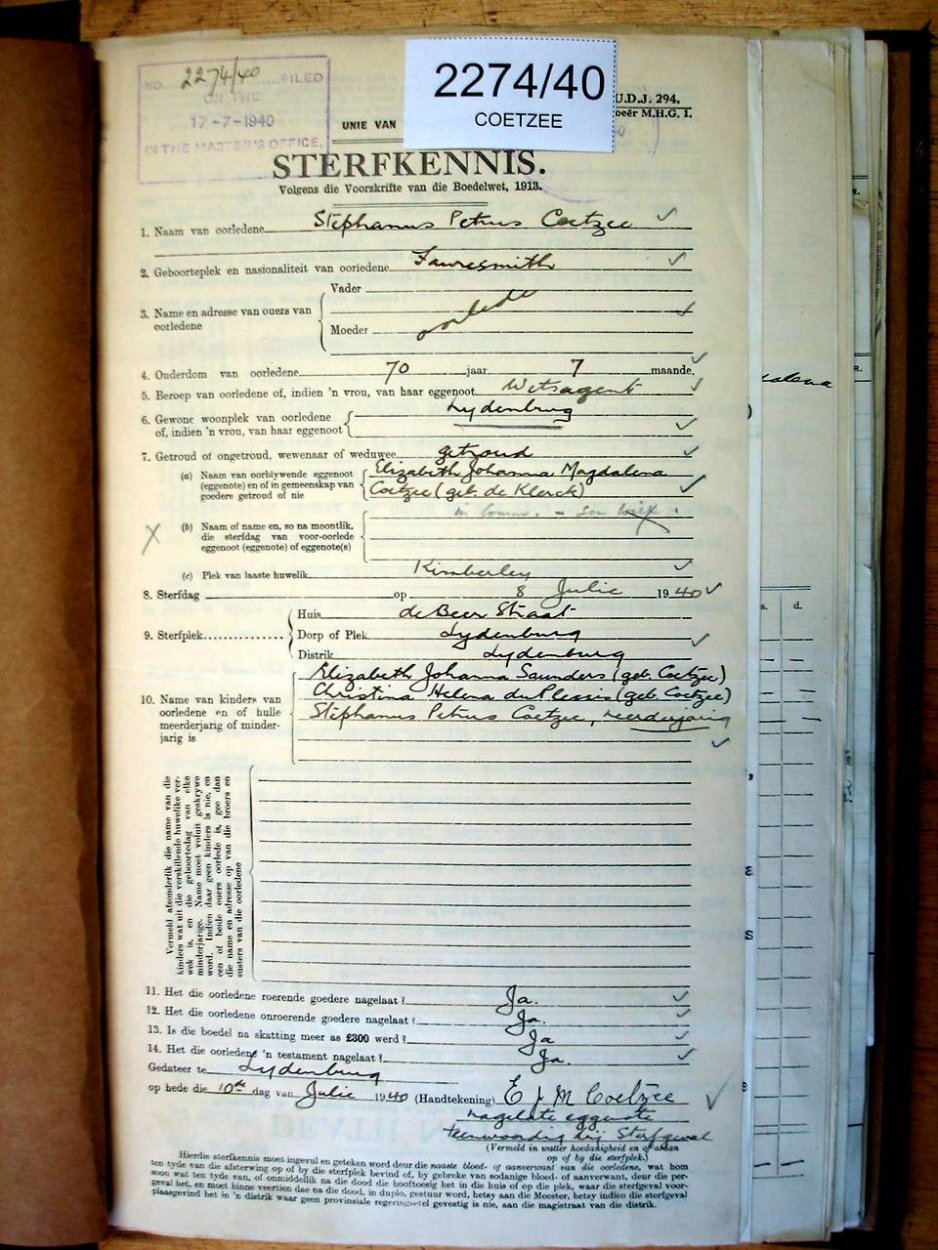 NO. 2274/40 FILED
ON THE
17-7-1940
IN THE MASTER'S OFFICE.
2274/40
COETZEE
U.D.J. 294.
M.H.G. 1.
UNIE VAN
STERFKENNIS.
Volgens die Voorskrifte van die Boedelwet, 1913.
1. Naam van oorledene Stephanus Petrus Coetzee
2. Geboorteplek en nasionaliteit van oorledene Fauresmith
3. Name en adresse van ouers van oorledene
Vader
oorlede
Moeder
4. Ouderdom van oorledene 70 jaar 7 maande.
5. Beroep van oorledene of, indien 'n vrou, van haar eggenoot Wetsagent
6. Gewone woonplek van oorledene Lydenburg
of, indien 'n vrou, van haar eggenoot
7. Getroud of ongetroud, wewenaar of weduwee getroud
(a) Naam van oorblywende eggenoot Elizabeth Johanna Magdalena
(eggenote) en of in gemeenskap van Coetzee (geb. de Klerck)
goedere getroud of nie
X (b) Naam of name en, so na moontlik,
die sterfdag van voor-oorlede
eggenoot (eggenote) of eggenote(s)
(c) Plek van laaste huwelik Kimberley
8. Sterfdag op 8 Julie 1940
9. Sterfplek
Huis de Beer Straat
Dorp of Plek Lydenburg
Distrik Lydenburg
10. Name van kinders van
oorledene en of hulle
meerderjarig of minder-
jarig is
Elizabeth Johanna Saunders (geb. Coetzee)
Christina Helena du Plessis (geb. Coetzee)
Stephanus Petrus Coetzee, meerderjarig
Vermeld afsonderlik die name van die
kinders wat uit die verskillende huwelike ver-
wek is, en die geboortedag van elke
minderjarige. Name moet voluit geskrywe
word. Indien daar geen kinders is nie, en
een of beide ouers oorlede is, gee dan
die name en adresse op van die broers en
susters van die oorledene
11. Het die oorledene roerende goedere nagelaat? Ja.
12. Het die oorledene onroerende goedere nagelaat? Ja.
13. Is die boedel na skatting meer as £300 werd? Ja
14. Het die oorledene 'n testament nagelaat? Ja.
Gedateer te Lydenburg
op hede die 10de dag van Julie 1940 (Handtekening) E J M Coetzee
nagelate eggenote
teenwoordig by Sterfgeval
(Vermeld in watter hoedanigheid en of
op of by die sterfplek.)
Hierdie sterfkennis moet ingevul en geteken word deur die naaste bloed- of aanverwant van die oorledene, wat hom
ten tyde van die afsterwing op of by die sterfplek bevind of, by gebreke van sodanige bloed- of aanverwant, deur die per-
soon wat ten tyde van, of onmiddellik na die dood die hooftoesig het in die huis of op die plek, waar die sterfgeval voor-
geval het, en moet binne veertien dae na die dood, in duplo, gestuur word, hetsy aan die Meester, hetsy indien die sterfgeval
plaasgevind het in 'n distrik waar geen provinsiale regeringsetel gevestig is nie, aan die magistraat van die distrik.